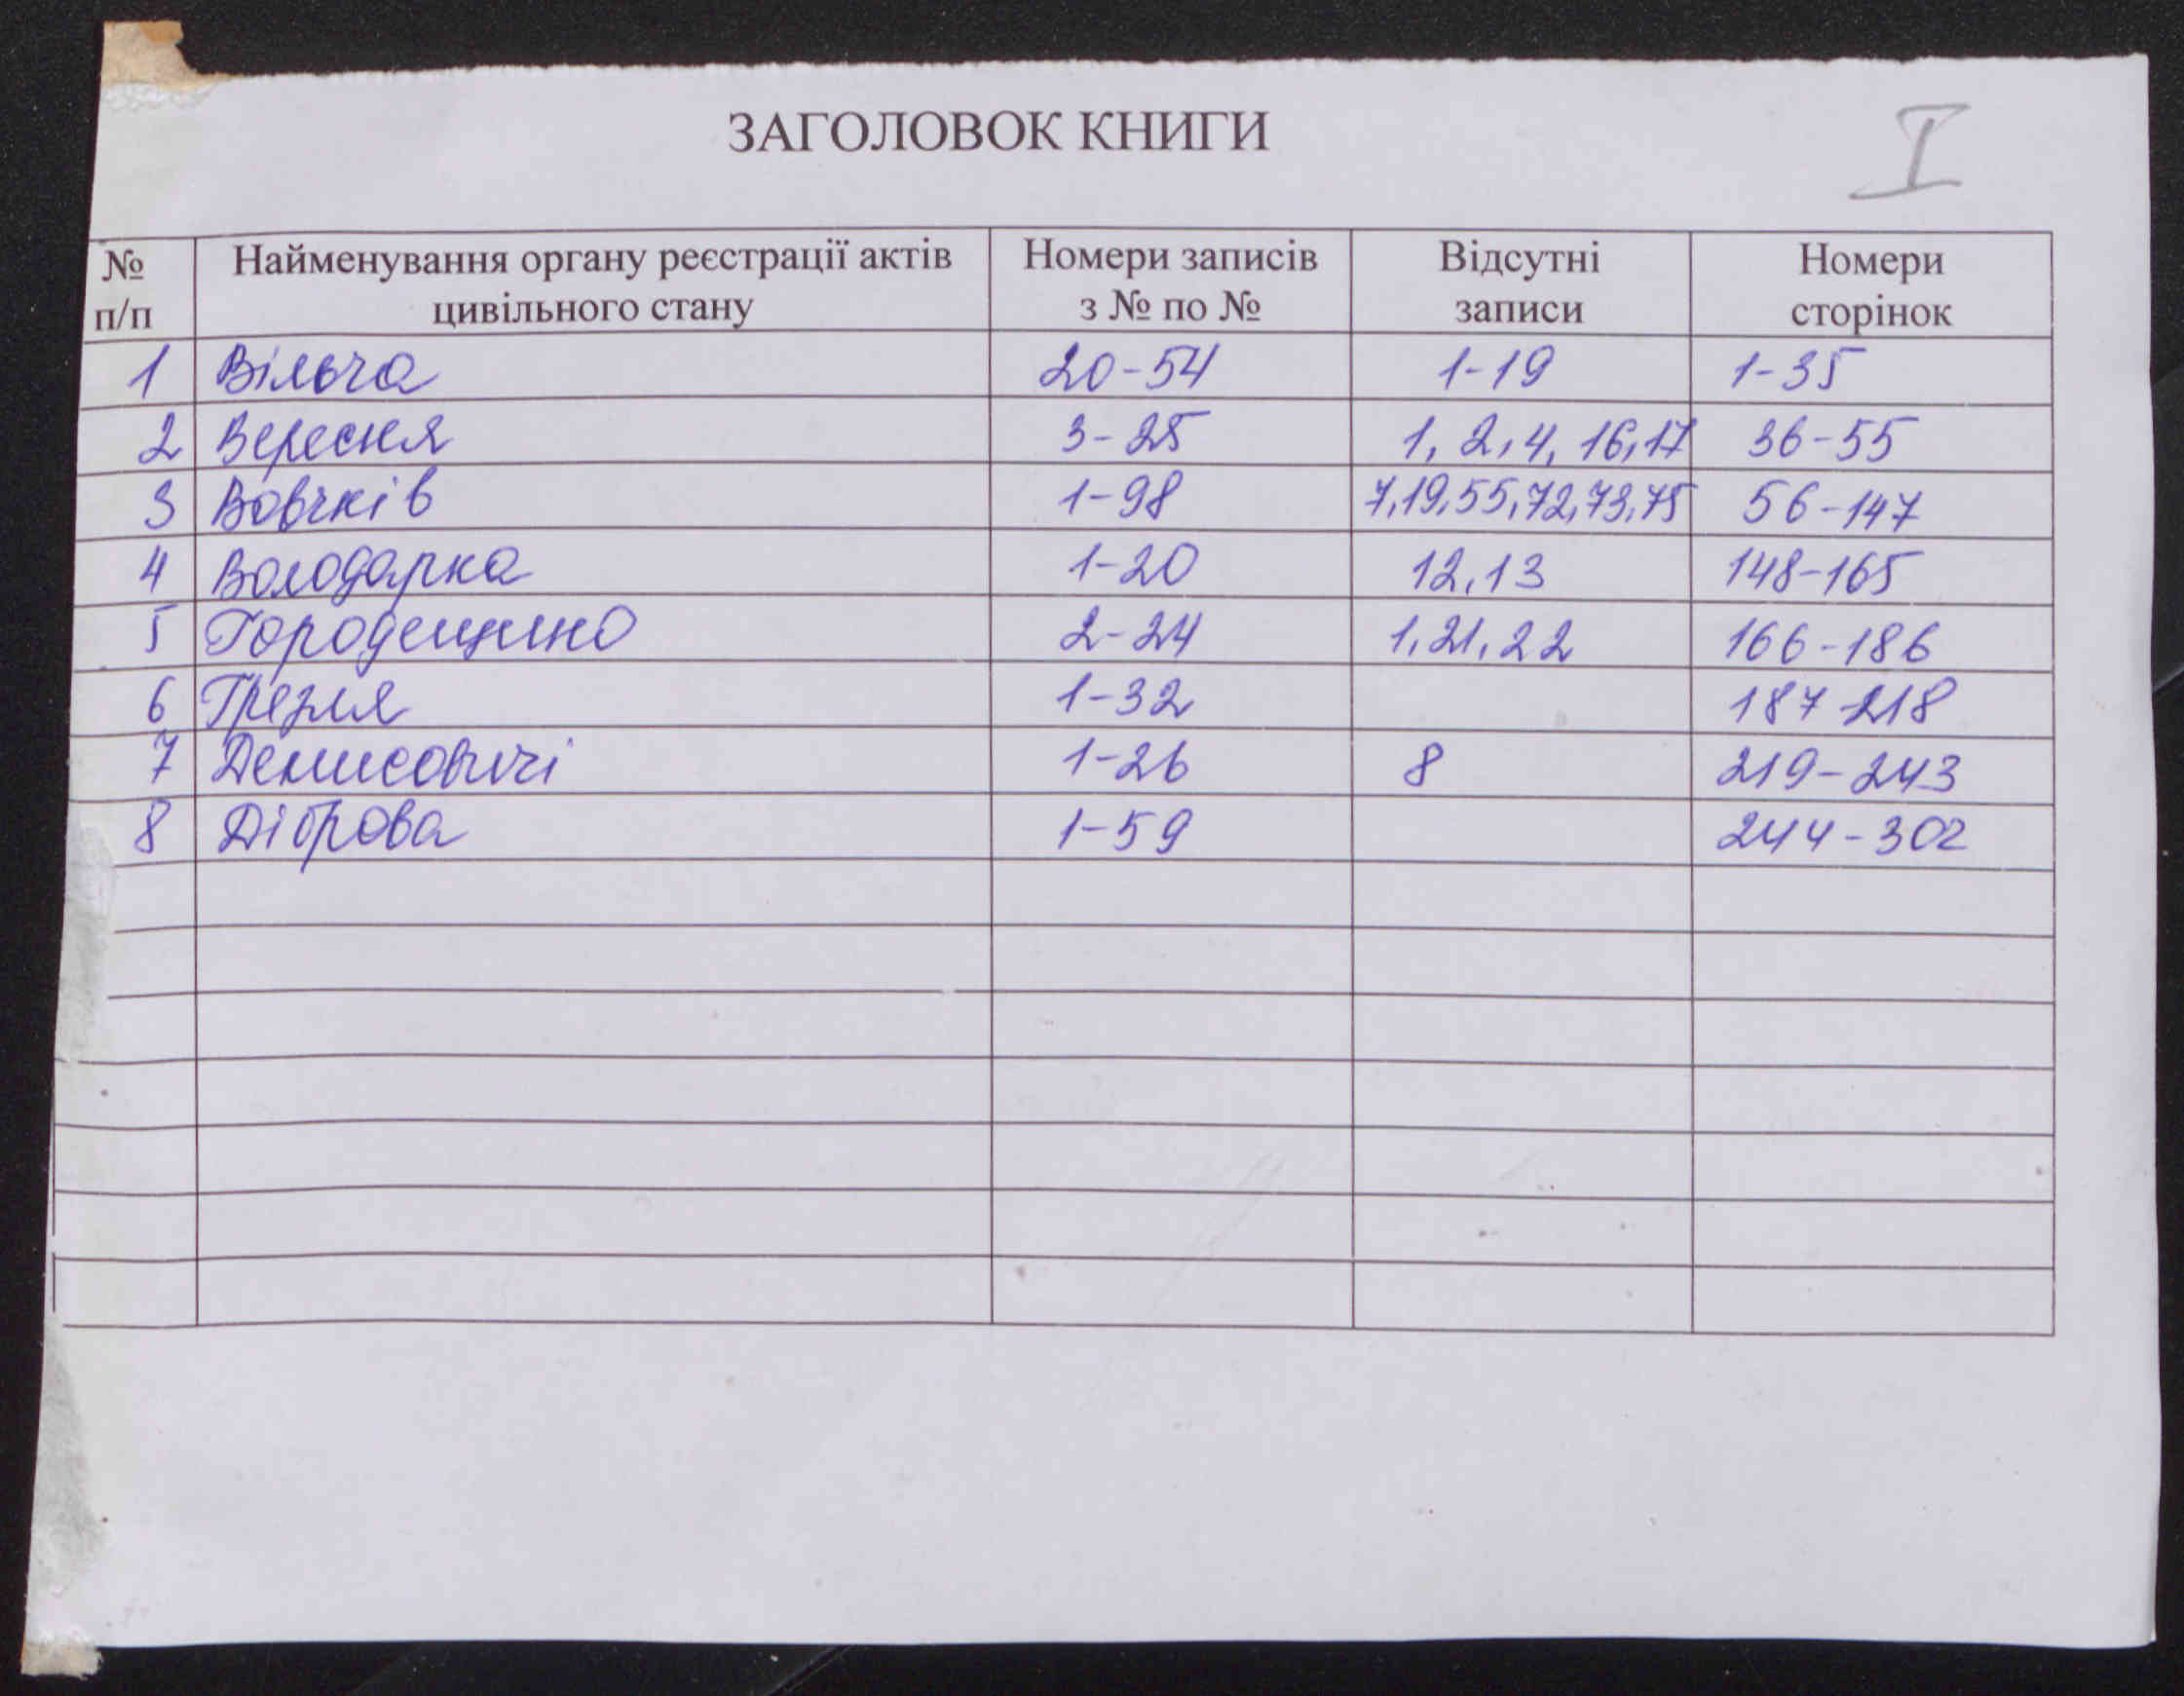 ЗАГОЛОВОК КНИГИ
I
№ п/п Найменування органу реєстрації актів цивільного стану Номери записів з № по № Відсутні записи Номери сторінок
1 Вільча 20-54 1-19 1-35
2 Вересня 3-25 1, 2, 4, 16, 17 36-55
3 Вовчків 1-98 7, 19, 55, 72, 73, 75 56-147
4 Володарка 1-20 12, 13 148-165
5 Городещино 2-24 1, 21, 22 166-186
6 Грезля 1-32 187-218
7 Денисовичі 1-26 8 219-243
8 Діброва 1-59 244-302